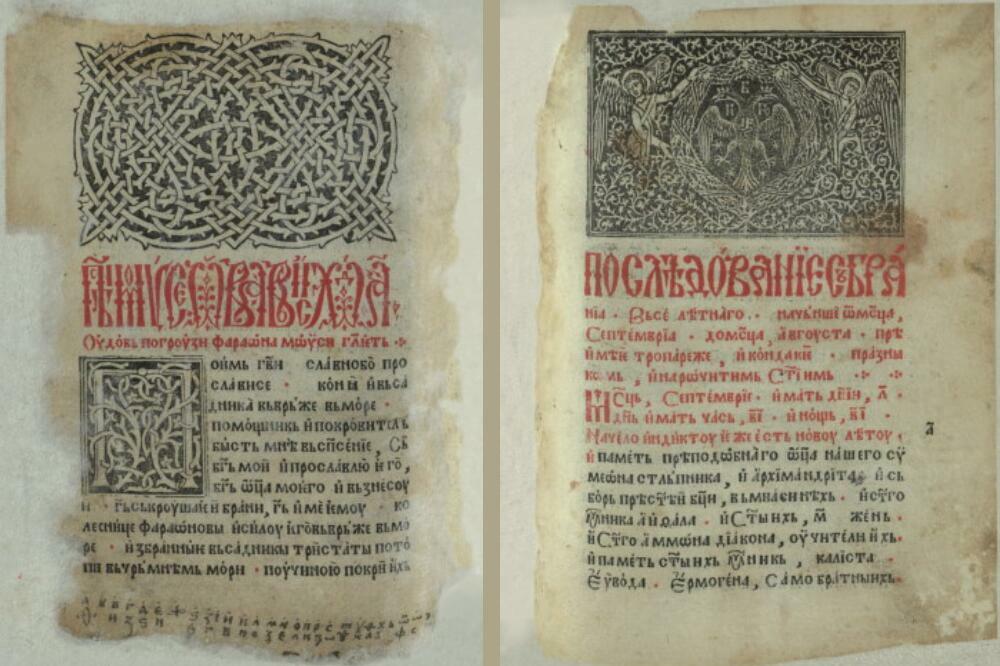 Оудобь погроуꙁи фараѡна мѡѵси гл҃ѥть
оимь гв҃и славнобѡ про
слависе · кони и вьса
дника вьврьже вьморе ·
помощникь и покровитель
бысть мнѣ вьсп҃сениѥ, Сь
бг҃ь мои и прославлю и го,
бг҃ь ѿц҃а моѥго и вьꙁнесоу
и · гь҃ ськроушаѥи брани, гь҃ име ѥмоу · ко
леснице фараѡновы и силоу ѥго вьврьже вьмо
ре · иꙁбранныѥ вьсадникы тристаты пото
пи вьчрьмнѣмь мори · поучиною покри ихь
ПОСЛѢДОВАНЇЕ СЬБРА
нїа · Вьсе лѣтнаго · начьнше ѿ мс҃ца,
Септемврїа · до мс҃ца, аѵгоуста · прѣ
имѣѥ тропареже, и кондакїи · праꙁны
комь, и нарѡчитимь Ст҃їимь
Мс҃ць, Септемврїе · имать дн҃їи, л҃ ·
дн҃ь имать чась, вı҃ · и нощь, вı҃ ·
Начело индиктоу иже ѥсть новоу лѣтоу,
и паметь прѣподѡбнаго ѿц҃а нашего сѵ
меѡна стльпника, и архїмандрїта · и сь
борь прѣст҃ѥи бц҃и, вь мїасинѣхь · и ст҃го
мч҃ника аиѳала · и Ст҃ыихь, м҃ жень ·
и Ст҃го аммѡна дїакона, оучителꙗ ихь ·
и паметь ст҃ыихь мч҃никь, калїста
Еѵвода · Ермогена, Само братныихь ·
а҃